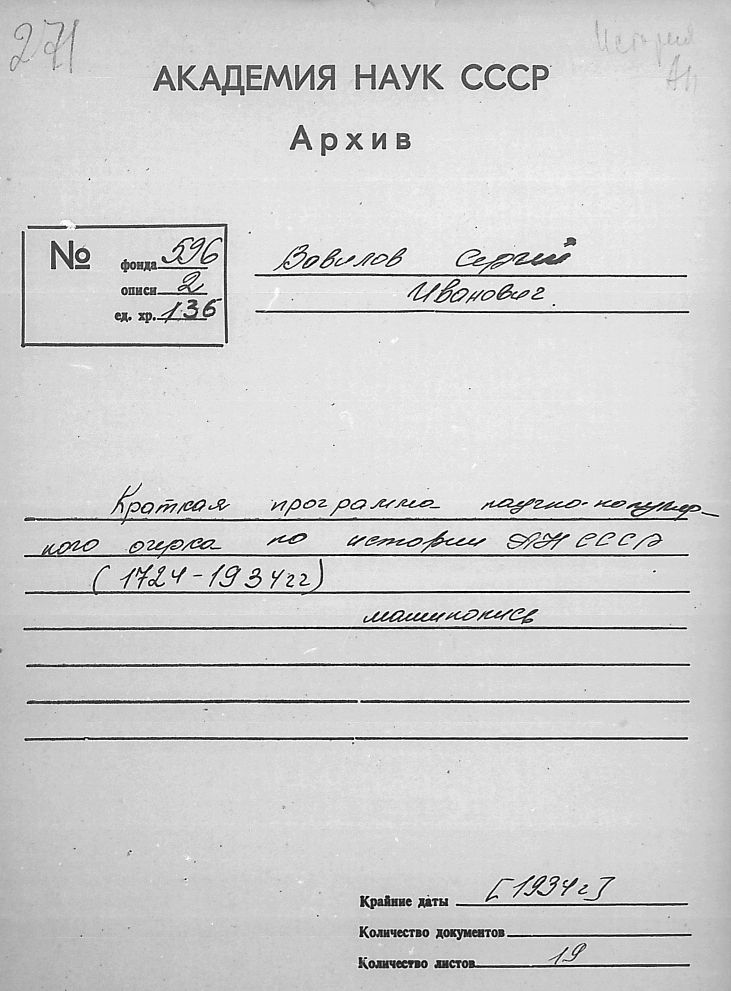 271
История
АН
АКАДЕМИЯ НАУК СССР
Архив
№
фонда 596
описи 2
ед. хр. 136
Вавилов Сергей
Иванович.
Краткая программа научно-популяр-
ного очерка по истории АН СССР
(1724-1934гг)
машинопись
Крайние даты [1934г]
Количество документов
Количество листов 19